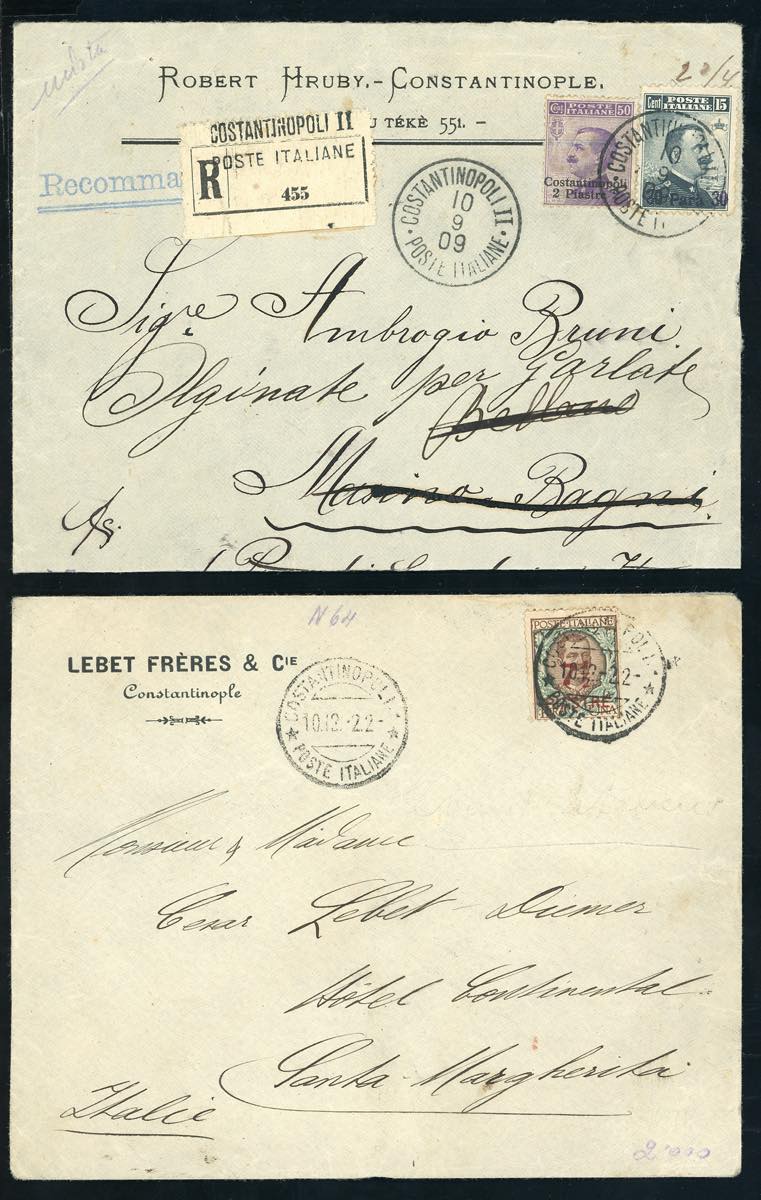 ROBERT HRUBY.-CONSTANTINOPLE.
U TÉKÈ 551. -
23/4
Recomma
COSTANTINOPOLI II
POSTE ITALIANE
R
455
COSTANTINOPOLI II
10
9
09
POSTE ITALIANE
Cent POSTE ITALIANE 50
Costantinopoli
2 Piastre
Cent POSTE ITALIANE 15
30 Para 30
COSTANTINOPOLI II
10
9
09
POSTE I
Sigre Ambrogio Bruni
Olginate per Garlate
Bellano
Masino-Bagni
N64
LEBET FRÈRES & CIE
Constantinople
COSTANTINOPOLI
10.12.22-
POSTE ITALIANE
POSTE·ITALIANE
COSTANTINOPOLI
10.12.22-
POSTE ITALIANE
Monsieur & Madame
Cesar Lebet-Diemer
Hôtel Continental
Santa-Margherita
Italie
2'000